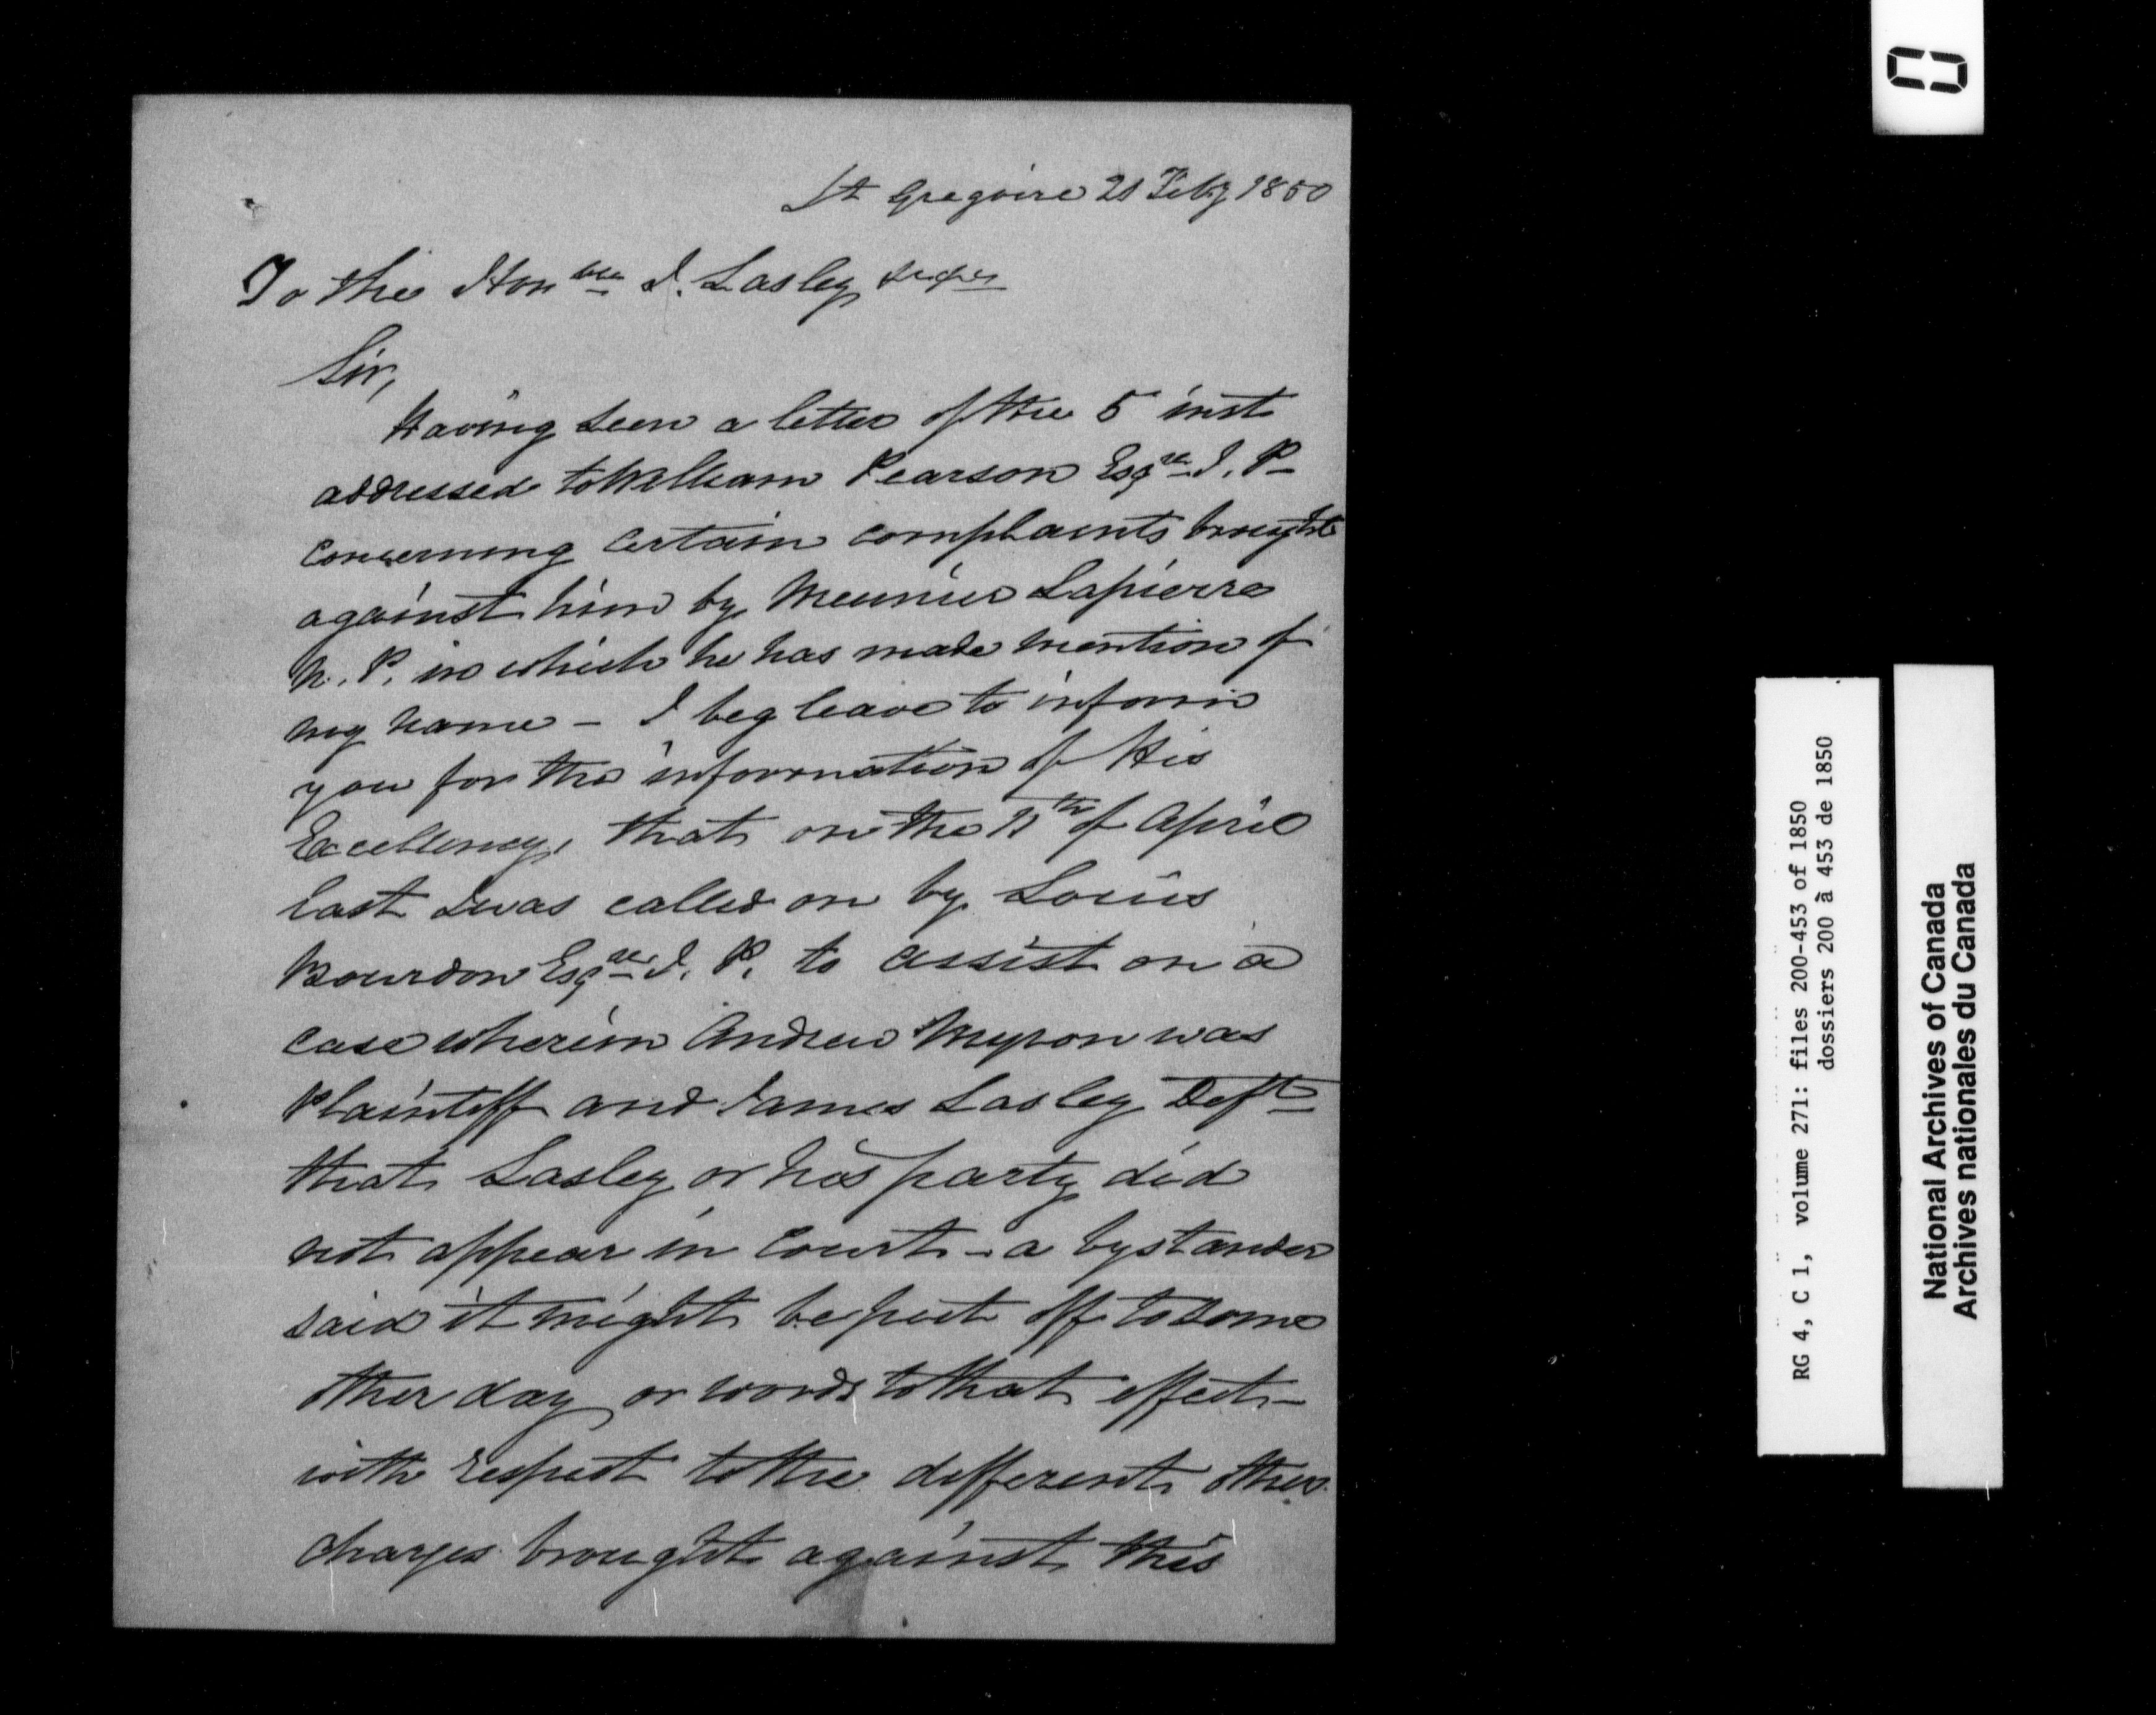 St Gregoire 21 Feby 1850
To the Honble J. Lasley
Sir,
Having seen a letter of the 5 inst
addressed to William Pearson Esqre J. P
concerning certain complaints brought
against him by Meunier Lapierre
N. P. in which he has made mention of
my name - I beg leave to inform
you for the information of His
Excellency, that on the th of April
last I was called on by Louis
Bourdon Esqre J. P. to assist on a
case wherein Andrew Myron was
Plaintiff and James Lasley Deft
that Lasley or his party did
not appear in Court - a bystander
said it might be put off to some
other day or words to that effect -
with respect to the different other
charges brought against this
0
RG 4, C 1, volume 271: files 200-453 of 1850
dossiers 200 à 453 de 1850
National Archives of Canada
Archives nationales du Canada